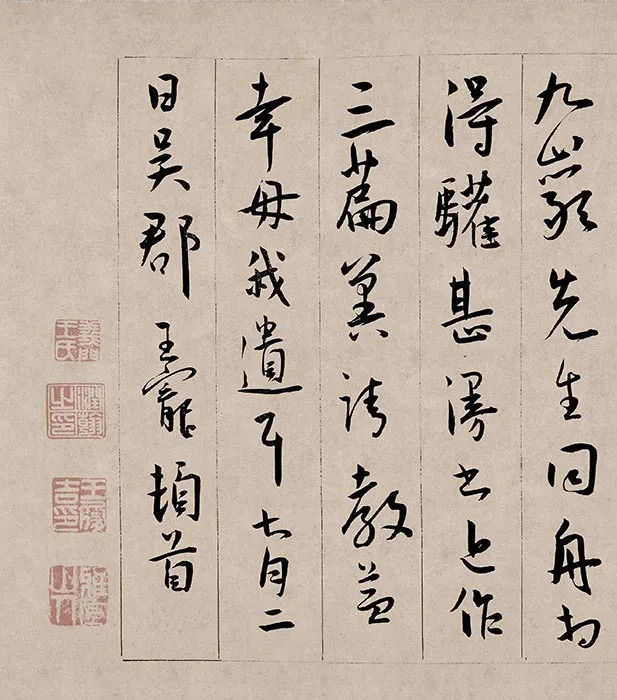 九巖先生同舟相
得驩甚漫書近作
三篇冀請教益
幸毋我遺耳七月二
日吳郡王寵頓首